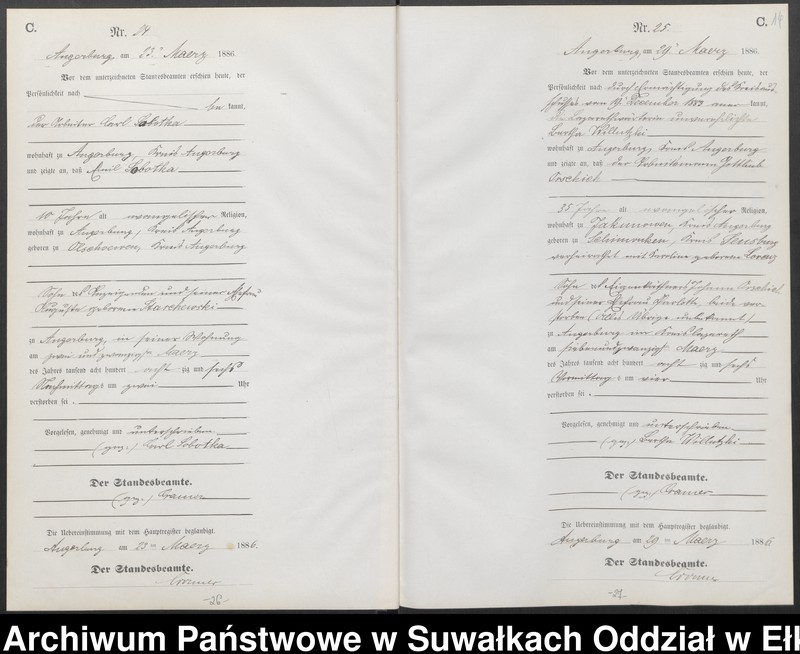 C.
Nr. 24
Angerburg am 23. Maerz 1886.
Vor dem unterzeichneten Standesbeamten erschien heute, der
Persönlichkeit nach
kannt,
der Arbeiter Karl Sobotka
wohnhaft zu Angerburg, Kreis Angerburg
und zeigte an, daß Emil Sobotka
10 Jahre alt evangelischer Religion,
wohnhaft zu Angerburg, Kreis Angerburg
geboren zu Kreis Angerburg
Sohn des Anzeigenden und seiner Ehefrau
Auguste geborene
zu Angerburg, in seiner Wohnung
am zwei und zwanzigsten Maerz
des Jahres tausend acht hundert acht zig und sechs
Nachmittags um zwei Uhr
verstorben sei.
Vorgelesen, genehmigt und unterschrieben
(gez.) Karl Sobotka
Der Standesbeamte.
(gez.) Cramer
Die Uebereinstimmung mit dem Hauptregister beglaubigt.
Angerburg am 23ten Maerz 1886.
Der Standesbeamte.
Cramer
-26-
C. 14
Nr. 25.
Angerburg, am 29. Maerz 1886.
Vor dem unterzeichneten Standesbeamten erschien heute, der
Persönlichkeit nach durch
vom Dezember 1883 aner kannt,
die Lazarethwärterin unverehelichte
Bertha Willutzki
wohnhaft zu Angerburg, Kreis Angerburg
und zeigte an, daß der Gottlieb
35 Jahre alt evangelischer Religion,
wohnhaft zu Jakunowen, Kreis Angerburg
geboren zu Kreis Sensburg
verheirathet mit Karoline geborene Lorenz
Sohn des Johann
und seiner Ehefrau beide ver-
storben
zu Angerburg im Kreislazareth
am siebenundzwanzigsten Maerz
des Jahres tausend acht hundert acht zig und sechs
Vormittags um vier Uhr
verstorben sei.
Vorgelesen, genehmigt und unterschrieben
(gez.) Bertha Willutzki
Der Standesbeamte.
(gez.) Cramer
Die Uebereinstimmung mit dem Hauptregister beglaubigt.
Angerburg am 29ten Maerz 1886
Der Standesbeamte.
Cramer
-27-
Archiwum Państwowe w Suwałkach Oddział w Ełk